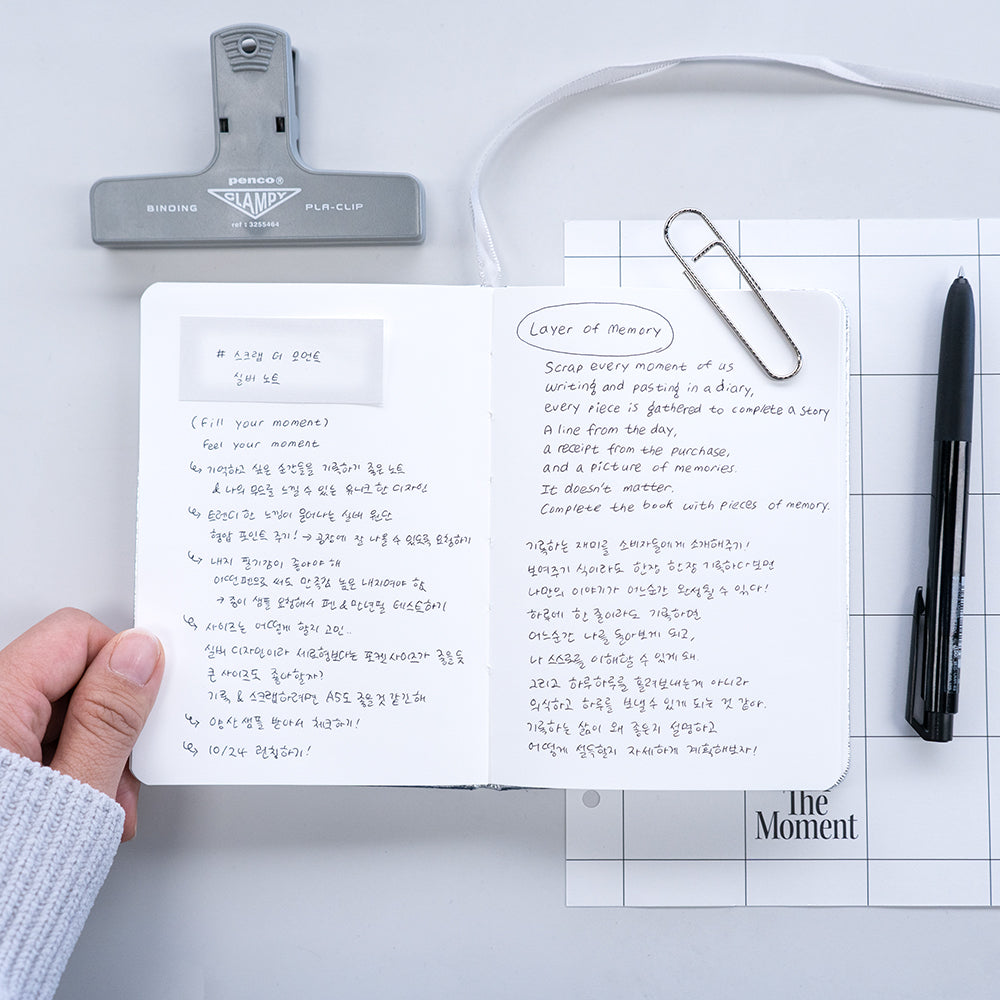 penco®
BINDING CLAMPY PLA-CLIP
ref : 3255464
# 스크랩 더 모먼트
실버 노트
(Fill your moment)
Feel your moment
↳ 기억하고 싶은 순간들을 기록하기 좋은 노트
& 나의 무드를 느낄 수 있는 유니크한 디자인
↳ 트렌디한 느낌이 묻어나는 실버 원단
형압 포인트 주기! → 공장에 잘 나올 수 있도록 요청하기
↳ 내지 필기감이 좋아야 해
어떤 펜으로 써도 만족감 높은 내지여야 함
→ 종이 샘플 요청해서 펜 & 만년필 테스트하기
↳ 사이즈는 어떻게 할지 고민..
실버 디자인이라 세로형보다는 포켓사이즈가 좋을듯
큰 사이즈도 좋아할까?
기록 & 스크랩하려면 A5도 좋을 것 같긴 해
↳ 양산 샘플 받아서 체크하기!
↳ 10/24 런칭하기!
Layer of memory
Scrap every moment of us
writing and pasting in a diary,
every piece is gathered to complete a story
A line from the day,
a receipt from the purchase,
and a picture of memories.
It doesn't matter.
Complete the book with pieces of memory.
기록하는 재미를 소비자들에게 소개해주기!
보여주기 식이라도 한장 한장 기록하다보면
나만의 이야기가 어느순간 완성될 수 있다!
하루에 한 줄이라도 기록하면
어느순간 나를 돌아보게 되고,
나 스스로를 이해할 수 있게 돼.
그리고 하루하루를 흘려보내는게 아니라
의식하고 하루를 보낼 수 있게 되는 것 같아.
기록하는 삶이 왜 좋은지 설명하고
어떻게 설득할지 자세하게 계획해보자!
The
Moment